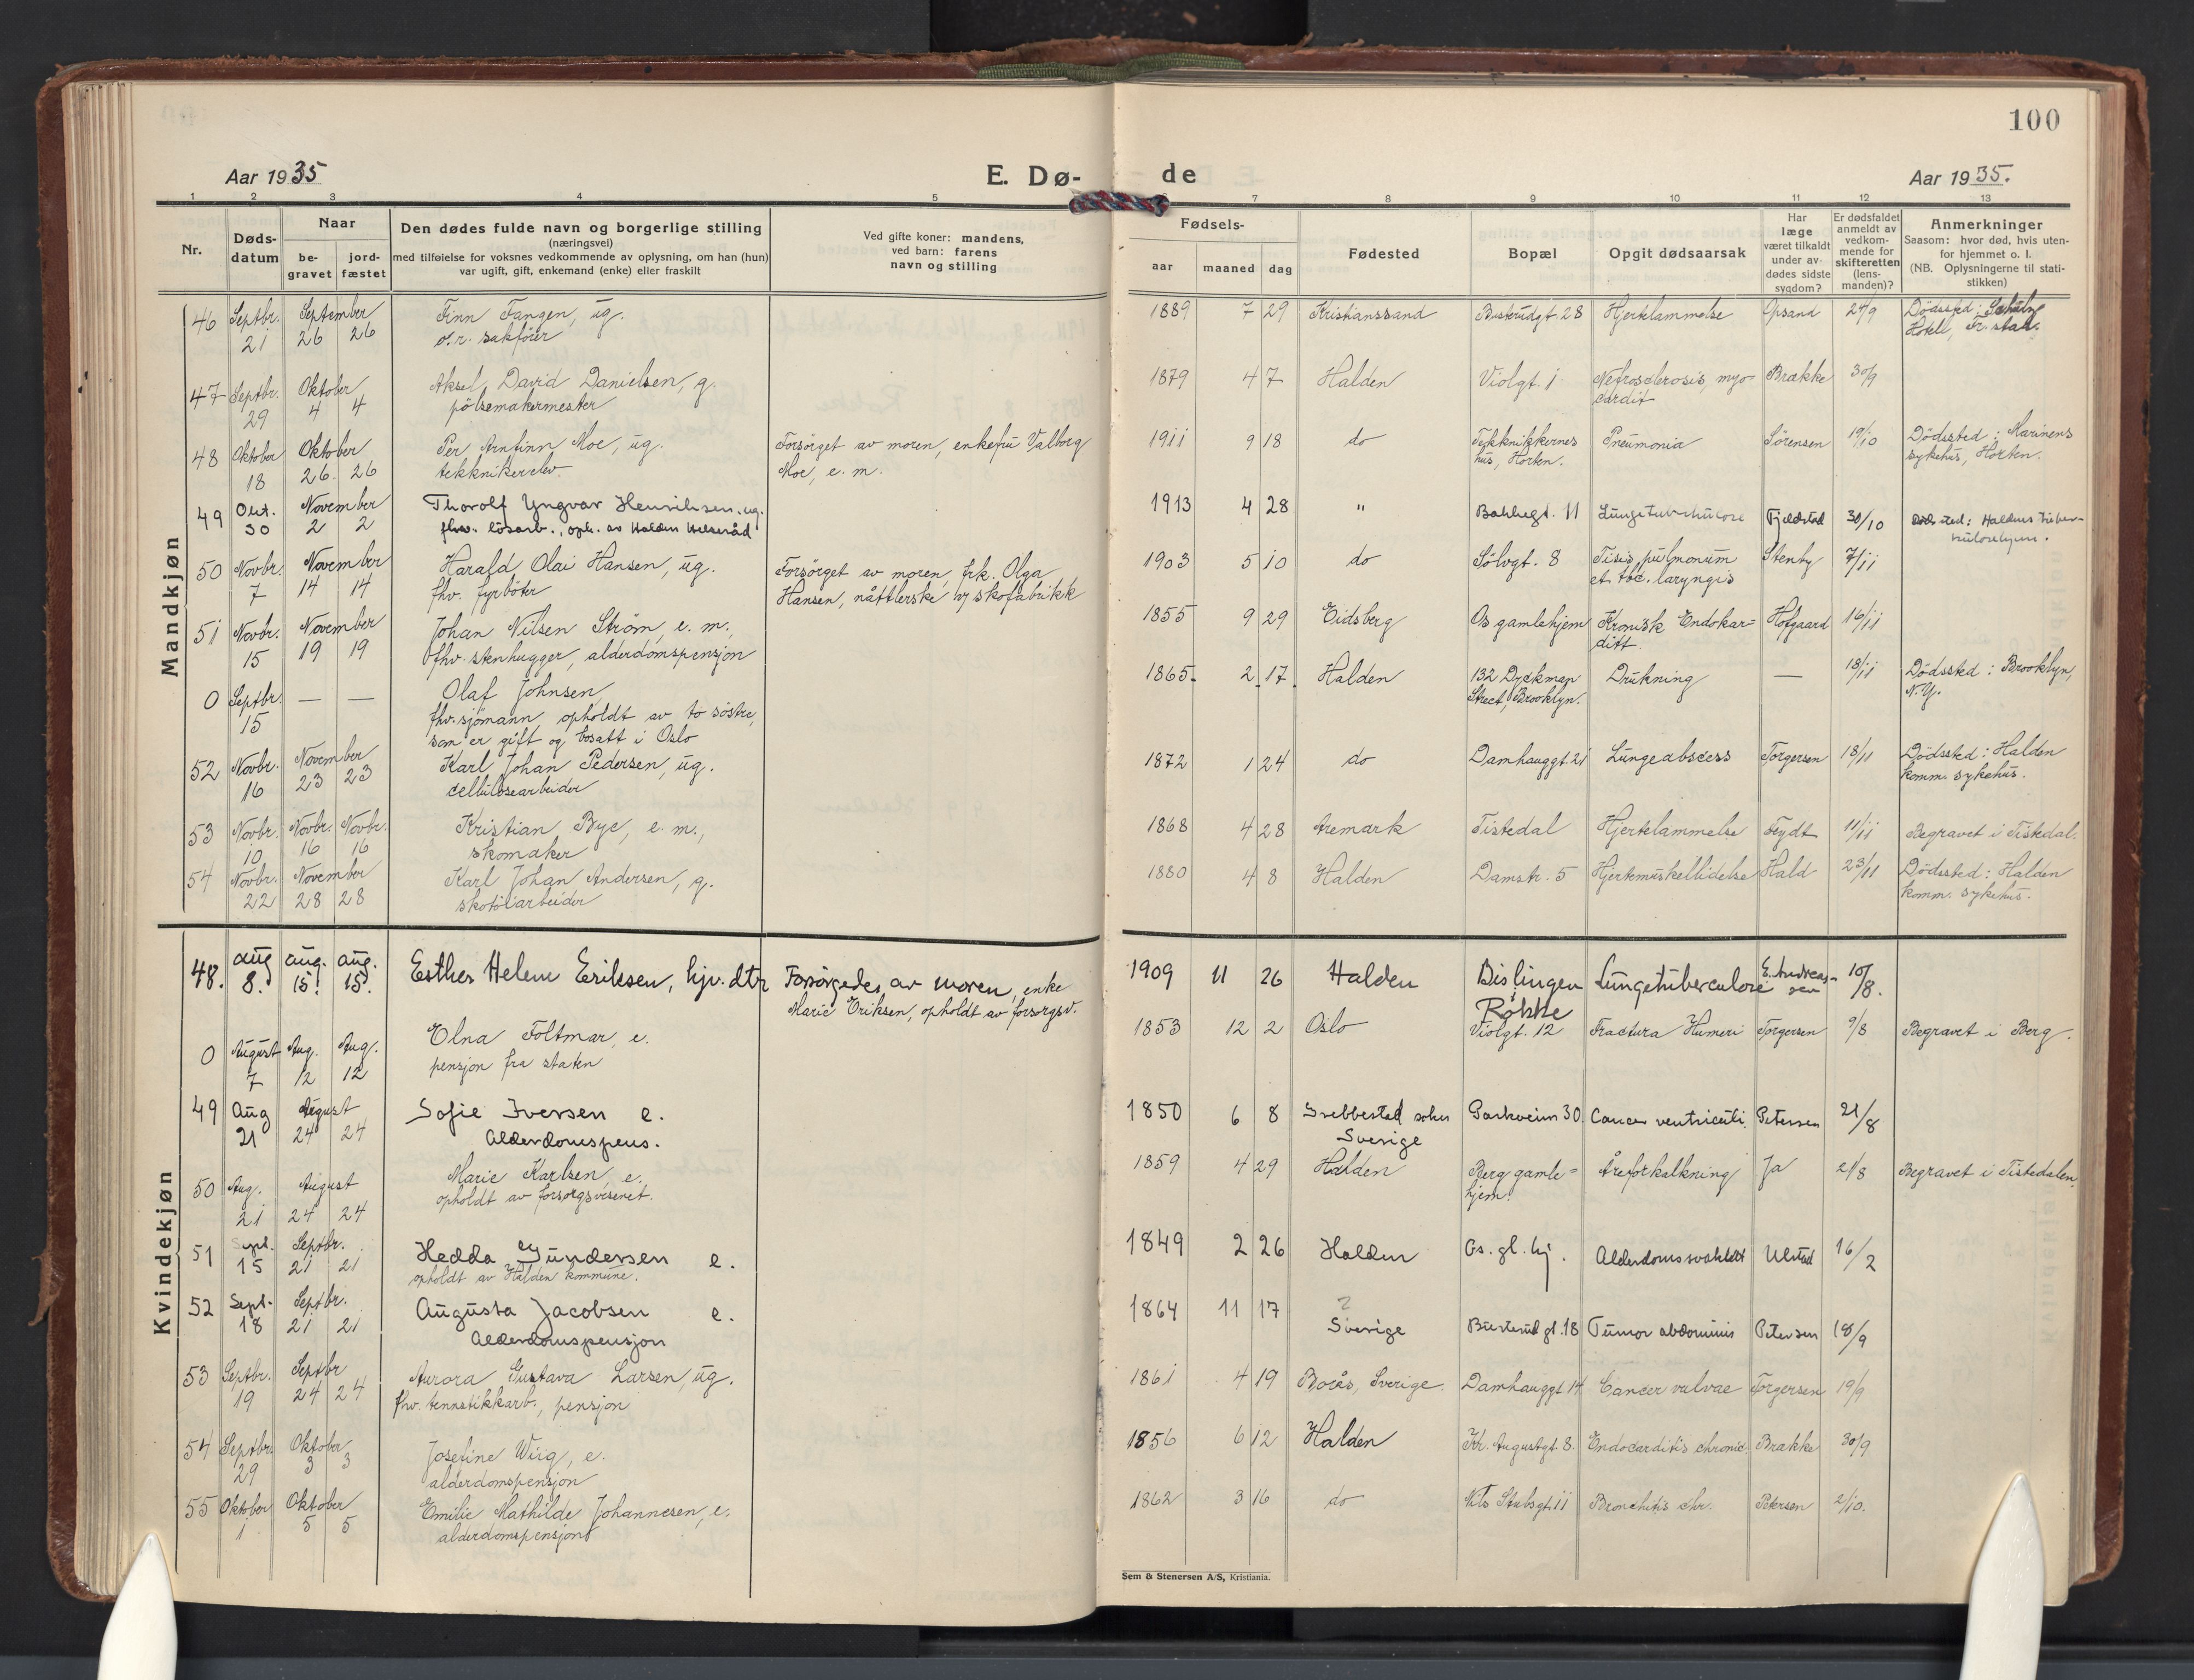 100
Aar 1935
E. Dø-
de
Aar 1935.
1 2 3 4 5 7 8 9 10 11 12 13
Nr.
Døds-
datum
Naar
be-
gravet
jord-
fæstet
Den dødes fulde navn og borgerlige stilling
(næringsvei)
med tilføielse for voksnes vedkommende av oplysning, om han (hun)
var ugift, gift, enkemand (enke) eller fraskilt
Ved gifte koner: mandens,
ved barn: farens
navn og stilling
Fødsels-
aar maaned dag
Fødested
Bopæl
Opgit dødsaarsak
Har
læge
været tilkaldt
under av-
dødes sidste
sygdom?
Er dødsfaldet
anmeldt av
vedkom-
mende for
skifteretten
(lens-
manden)?
Anmerkninger
Saasom: hvor død, hvis uten-
for hjemmet o. l.
(NB. Oplysningerne til stati-
stikken)
Mandkjøn
46 Septbr. September Finn Fangen, ug. 1889 7 29 Kristianssand Buskrudgt. 28 Hjertelammelse Opsand 24/9 Dødssted:
21 26 26 o.r. sakfører Hotell, Fr.stad.
47 Septbr. Oktober Aksel David Danielsen, g. 1879 4 7 Halden Violgt. 1 Nefrosclerosis, myo- Brække 30/9
29 4 4 pølsemakermester cardit
48 Oktober Oktober Per Arnfinn Moe, ug. Forsørget av moren, enkefru Valborg 1911 9 18 do Tekknikkernes Pneumonia Sørensen 19/10 Dødssted: Marinens
18 26 26 tekknikerelev Moe, e. m. hus, Horten. sykehus, Horten.
49 Okt. November Thorolf Yngvar Henriksen. ug. 1913 4 28 " Bakkegt. 11 Lungetuberkulose Fjeldstad 30/10 Dødssted: Haldens tuber-
30 2 2 fhv. løsarb., oph. av Halden Helseråd kulosehjem.
50 Novbr. November Harald Olai Hansen, ug. Forsørget av moren, frk. Olga 1903 5 10 do Sølvgt. 8 Tisis pulmonum Stenby 7/11
7 14 14 fhv. fyrbøter Hansen, nåtlerske v/ skofabrikk et tbc. laryngis
51 Novbr. November Johan Nilsen Strøm, e. m., 1855 9 29 Eidsberg Os gamlehjem Kronisk Endokar- Hofgaard 16/11
15 19 19 fhv. stenhugger, alderdomspensjon ditt.
0 Septbr. — — Olaf Johnsen, 1865 2 17 Halden 132 Dyckman Drukning — 18/11 Dødssted: Brooklyn,
15 fhv. sjømann, opholdt av to søstre, Street, Brooklyn. N.Y.
som er gift og bosatt i Oslo
52 Novbr. November Karl Johan Pedersen, ug. 1872 1 24 do Damhauggt. 21 Lungeabscess Torgersen 18/11 Dødssted: Halden
16 23 23 cellulosearbeider komm. sykehus.
53 Novbr. Novbr. Novbr. Kristian Bye, e. m., 1868 4 28 Aremark Tistedal Hjertelammelse Feydt 11/11 Begravet i Tistedal.
10 16 16 skomaker
54 Novbr. November Karl Johan Andersen, g. 1880 4 8 Halden Damstr. 5 Hjertemuskellidelse Hald 23/11 Dødssted: Halden
22 28 28 skotøiarbeider komm. sykehus.
Kvindekjøn
48. aug aug. aug. Esther Helene Eriksen, hjv. dtr Forsørgedes av moren, enke 1909 11 26 Halden Bislingen Lungetuberculose E. Andreas- 10/8.
8. 15. 15. Marie Eriksen, opholdt av forsorgsv. Rokke sen
0 August Aug. Aug. Elna Foltmar, e. 1853 12 2 Oslo Violgt. 12 Fractura Humeri Torgersen 9/8 Begravet i Berg.
7 12 12 pensjon fra staten
49 Aug August Sofie Iversen e. 1850 6 8 Parkveien 30 Cancer ventriculi. Petersen 21/8
21 24 24 Alderdomspens. Sverige
50 Aug. August Marie Karlsen, e. 1859 4 29 Halden Berg gamle- Åreforkalkning Ja 21/8 Begravet i Tistedalen.
21 24 24 opholdt av forsorgsvesenet. hjem.
51 Sept. Septbr. Hedda Gundersen e. 1849 2 26 Halden Os. gl. hj. Alderdomssvakhet Ulstad 16/2
15 21 21 opholdt av Halden kommune.
52 Sept. Septbr. Augusta Jacobsen e. 1864 11 17 ? Sverige Busterud gt. 18 Tumor abdominis Petersen 18/9
18 21 21 Alderdomspensjon
53 Septbr. Septbr Aurora Gustava Larsen, ug. 1861 4 19 Borås, Sverige. Damhauggt 14 Cancer vulvae Torgersen 19/9
19 24 24 fhv. tennstikkarb., pensjon
54 Septbr. Oktober Josefine Wiig, e. 1856 6 12 Halden Kr. Augustgt. 8. Endocarditis chronic Brække 30/9
29 3 3 alderdomspensjon
55 Oktober Oktober Emilie Mathilde Johannesen, e. 1862 3 16 do Nils Stubsgt. 11 Bronchitis chr. Petersen 2/10.
1 5 5 alderdomspensjon
Sem & Stenersen A/S, Kristiania.